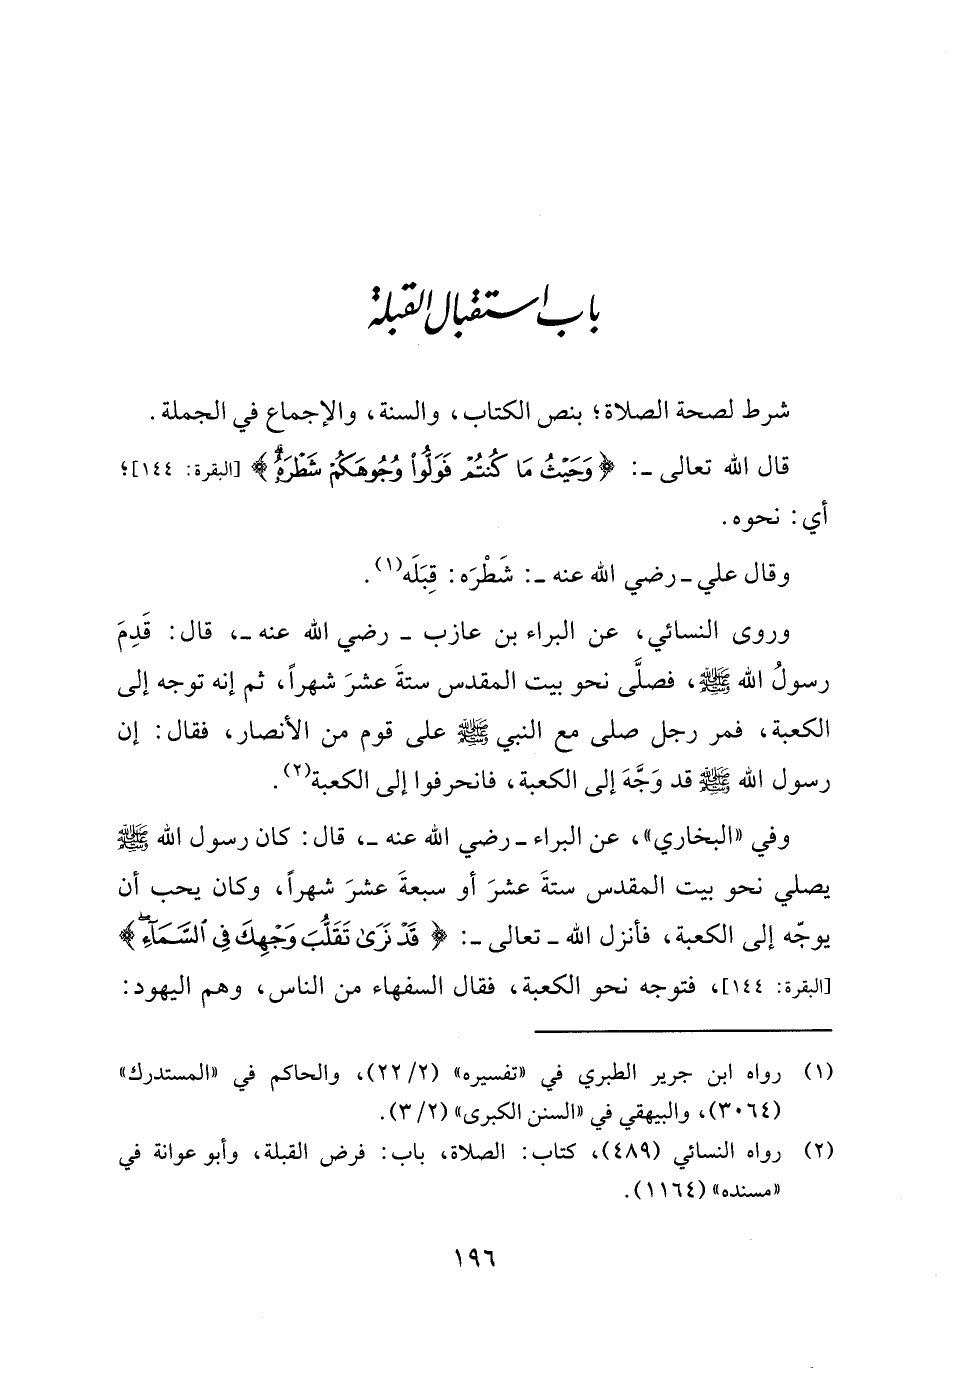 باب استقبال القبلة
شرط لصحة الصلاة؛ بنص الكتاب، والسنة، والإجماع في الجملة.
قال الله تعالى ـ: ﴿وَحَيْثُ مَا كُنتُمْ فَوَلُّوا۟ وُجُوهَكُمْ شَطْرَهُۥ﴾ [البقرة: ١٤٤]؛
أي: نحوه.
وقال علي ـ رضي الله عنه ـ: شَطْرَه: قِبَلَه(١).
وروى النسائي، عن البراء بن عازب ـ رضي الله عنه ـ، قال: قَدِمَ
رسولُ الله ﷺ، فصلَّى نحو بيت المقدس ستةَ عشرَ شهراً، ثم إنه توجه إلى
الكعبة، فمر رجل صلى مع النبي ﷺ على قوم من الأنصار، فقال: إن
رسول الله ﷺ قد وَجَّهَ إلى الكعبة، فانحرفوا إلى الكعبة(٢).
وفي «البخاري»، عن البراء ـ رضي الله عنه ـ، قال: كان رسول الله ﷺ
يصلي نحو بيت المقدس ستةَ عشرَ أو سبعةَ عشرَ شهراً، وكان يحب أن
يوجّه إلى الكعبة، فأنزل الله ـ تعالى ـ: ﴿قَدْ نَرَىٰ تَقَلُّبَ وَجْهِكَ فِى ٱلسَّمَآءِ﴾
[البقرة: ١٤٤]، فتوجه نحو الكعبة، فقال السفهاء من الناس، وهم اليهود:
(١) رواه ابن جرير الطبري في «تفسيره» (٢/ ٢٢)، والحاكم في «المستدرك»
(٣٠٦٤)، والبيهقي في «السنن الكبرى» (٢/ ٣).
(٢) رواه النسائي (٤٨٩)، كتاب: الصلاة، باب: فرض القبلة، وأبو عوانة في
«مسنده» (١١٦٤).
١٩٦